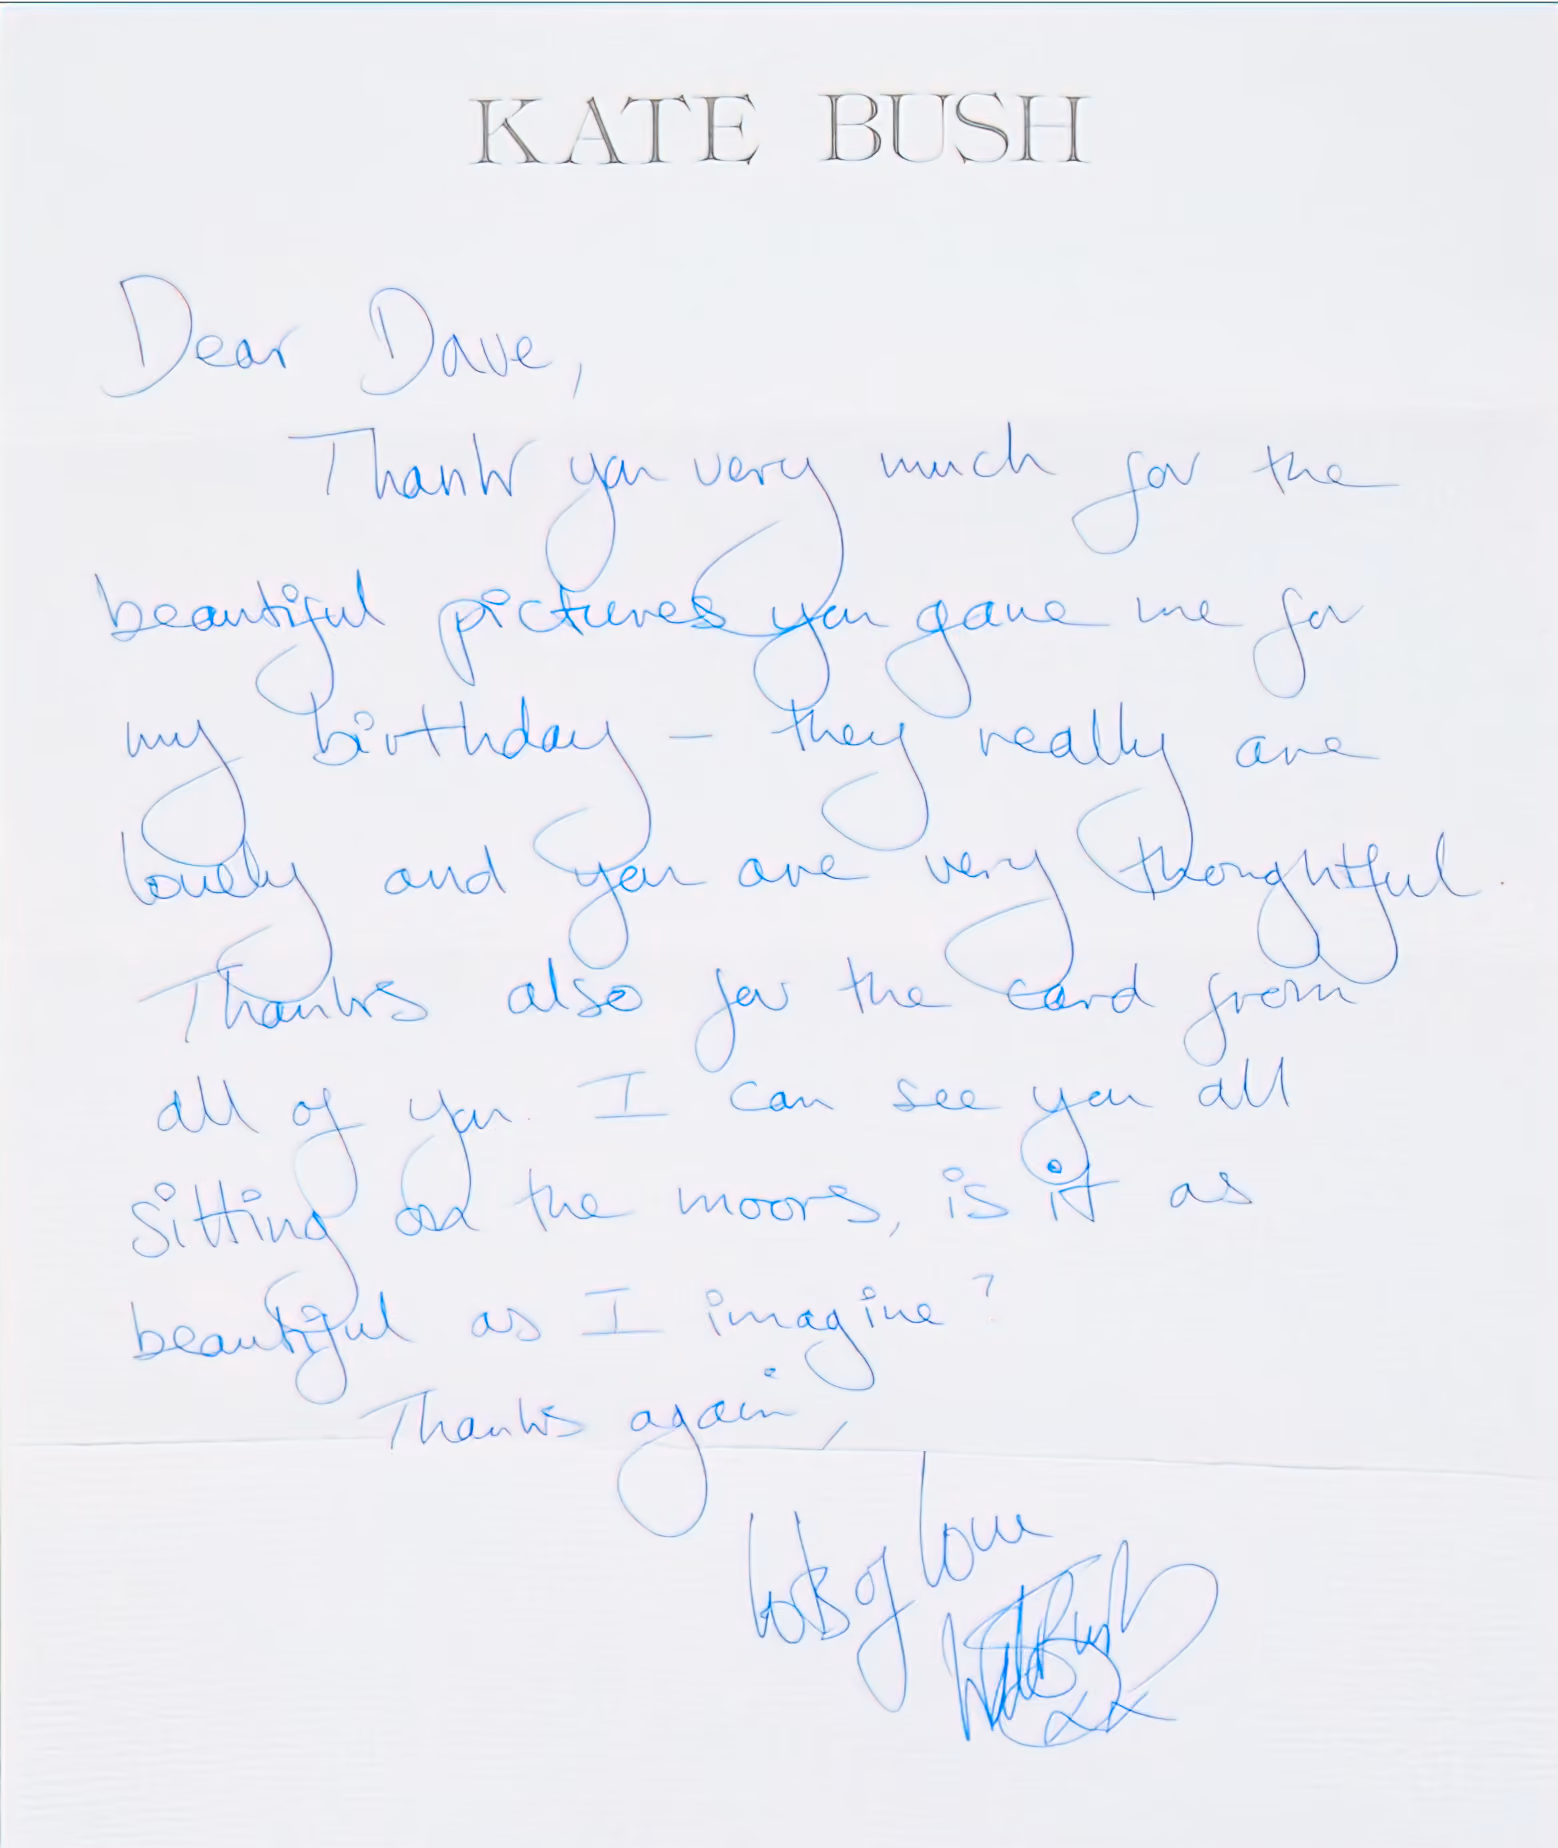 KATE BUSH
Dear Dave,
Thank you very much for the
beautiful pictures you gave me for
my birthday – they really are
lovely and you are very thoughtful.
Thanks also for the card from
all of you. I can see you all
sitting on the moors, is it as
beautiful as I imagine?
Thanks again,
lots of love
Kate Bush
xx